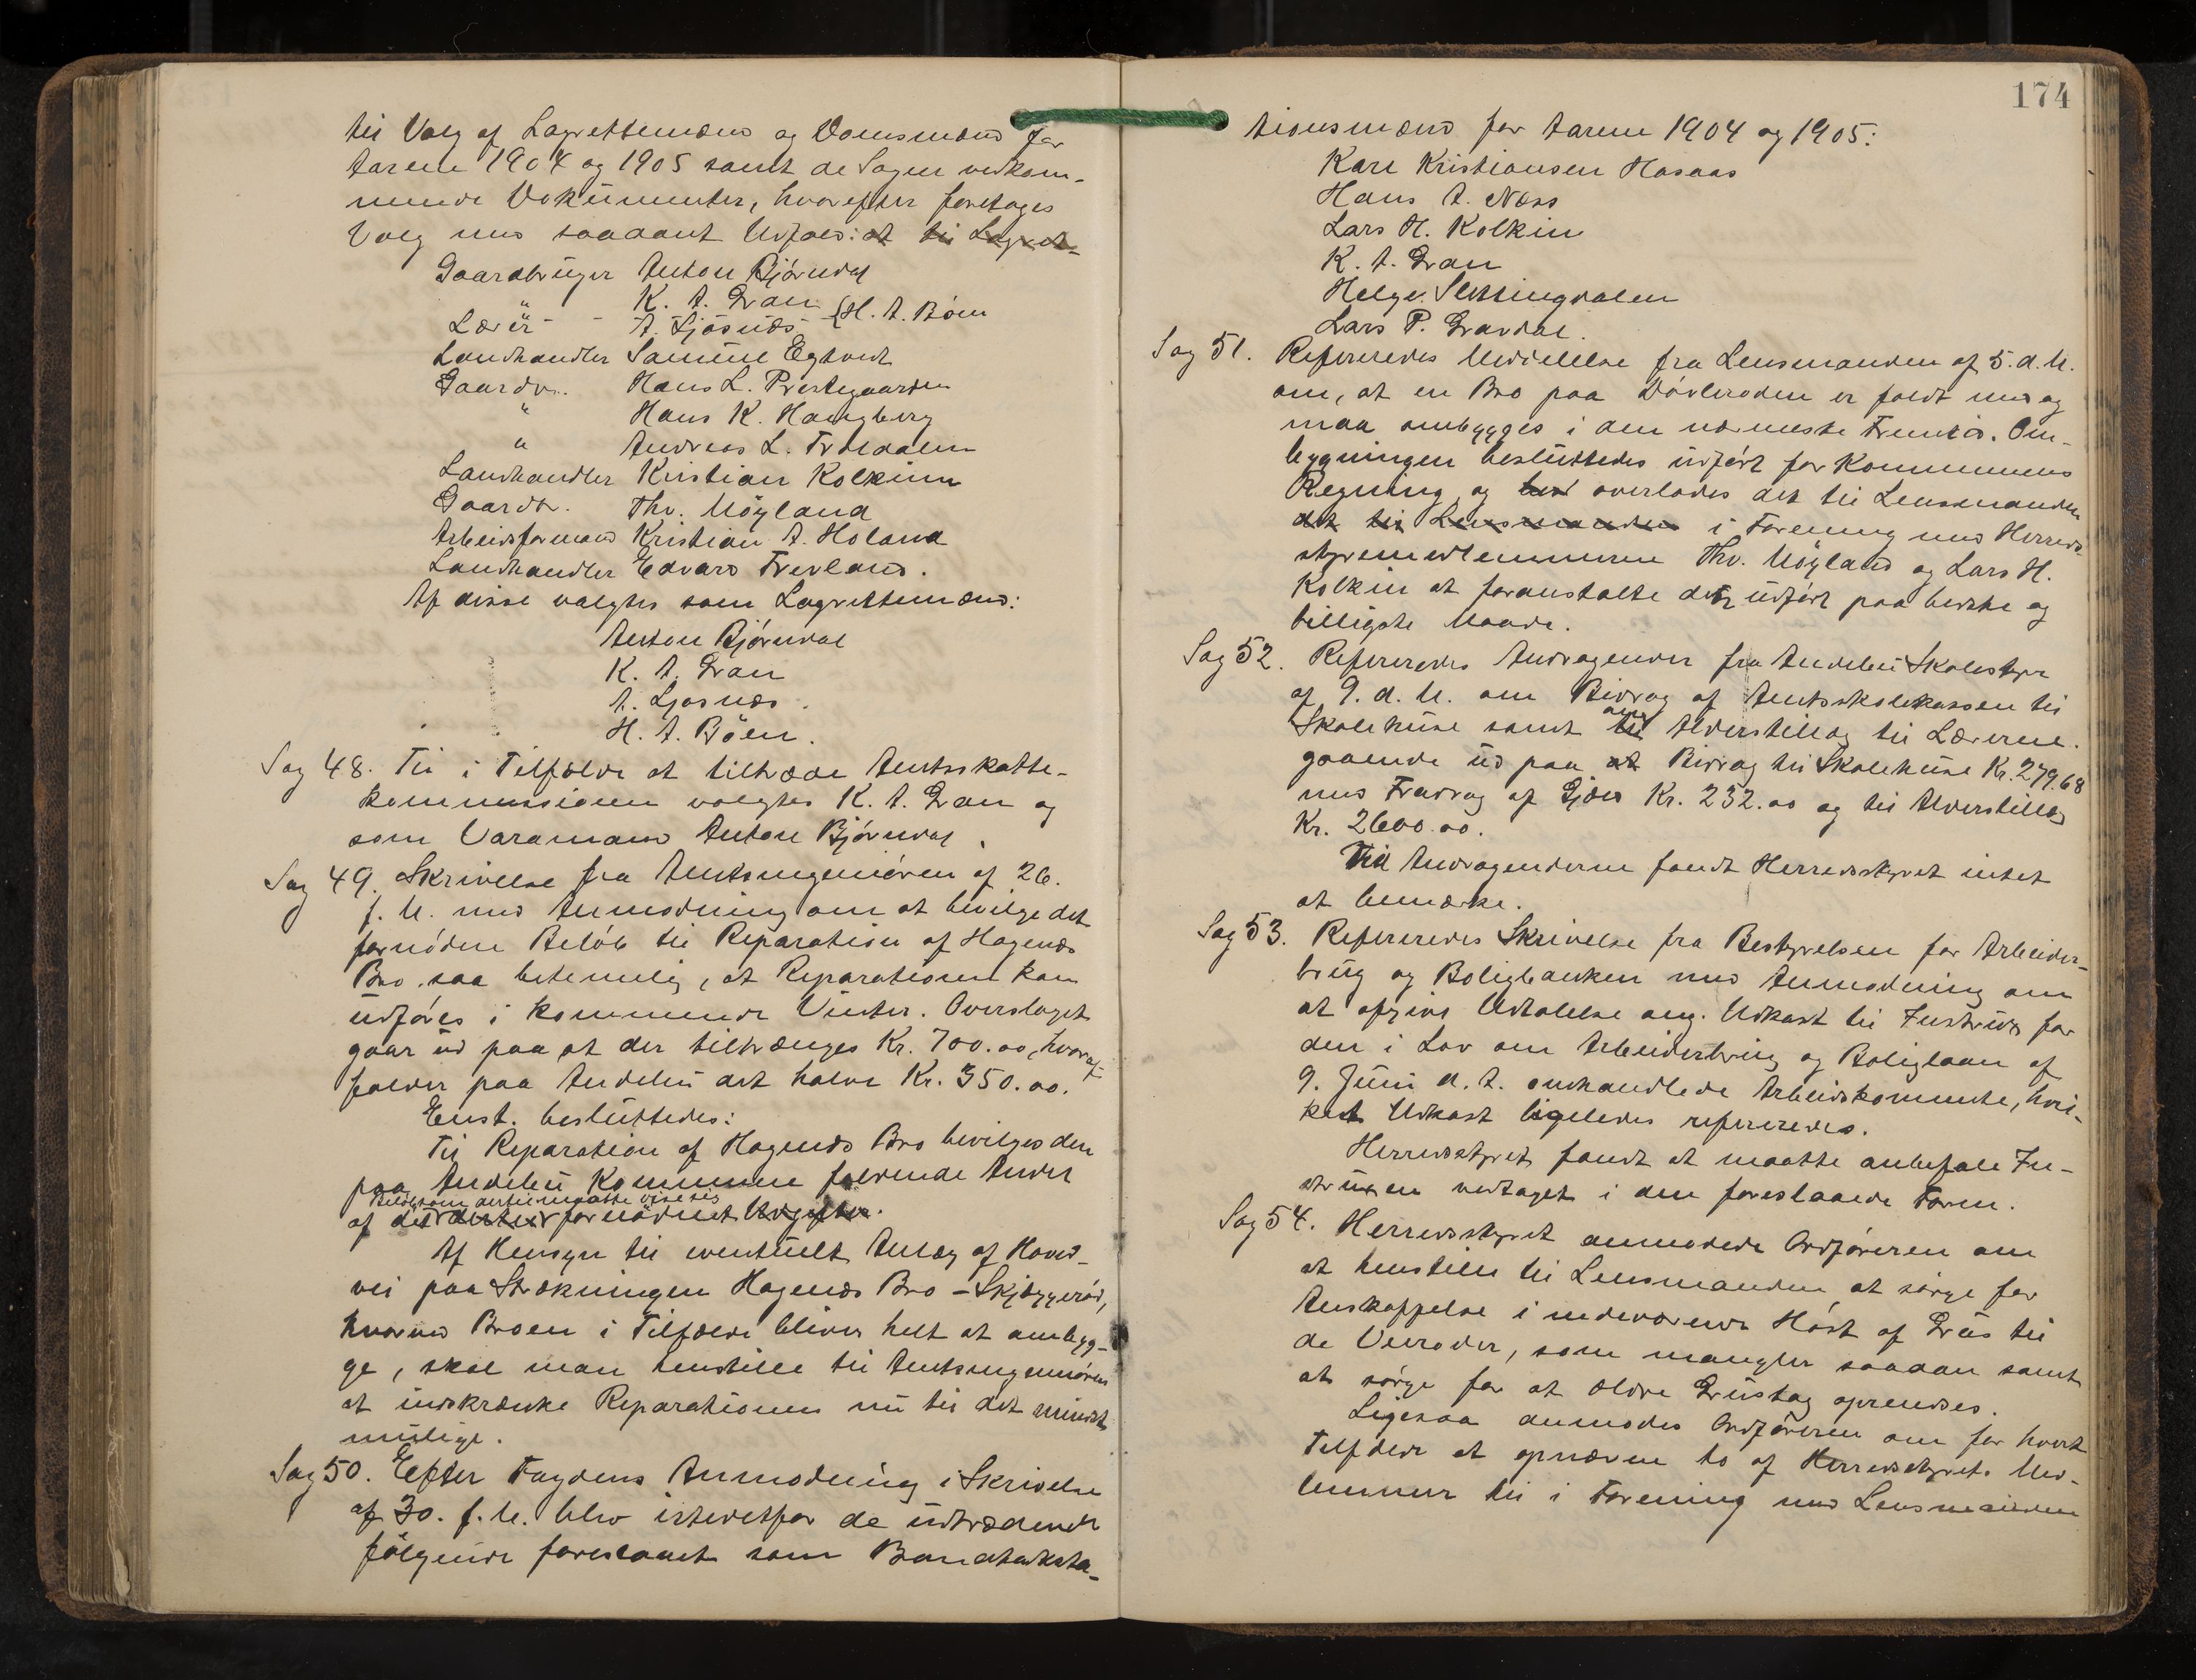 til Valg af Lagrettemænd og Domsmænd for
Aarene 1904 og 1905 samt de Sagen vedkom-
mende Dokumenter, hvorefter foretages
Valg med saadant Udfald: at til Lagret-
Gaardbruger Anton Bjørndal
" K. A. Gran
Lærer A. Ljøsnæs H. A. Böen
Landhandler Samuel Egtvedt
Gaardb. Hans L. Prestegaarden
" Hans K. Haugberg
" Andreas L. Troldalen
Landhandler Kristian Kolkinn
Gaardb. Thv. Möyland
Arbeidsformand Kristian A. Holand
Landhandler Edvard Treeland.
Af disse valgtes som Lagrettemænd:
Anton Bjørndal
K. A. Gran
A. Ljosnæs.
H. A. Böen.
Sag 48. Til i Tilfælde at tiltræde Amtsskatte-
kommissionen valgtes K. A. Gran og
som Varamand Anton Bjørndal.
Sag 49. Skrivelse fra Amtsingeniøren af 26.
f. M. med Anmodning om at bevilge det
fornødne Beløb til Reparation af Hagenæs
Bro saa betimelig, at Reparationen kan
udføres i kommende Vinter. Overslaget
gaar ud paa at der tiltrænges Kr. 700.00, hvoraf
falder paa Andebu det halve Kr. 350.00.
Enst. besluttedes:
Til Reparation af Hagenæs Bro bevilges den
paa Andebu Kommune faldende Andel
Beløb som dertil maatte vise sig
af det dertil fornødent Udgifter.
Af Hensyn til eventuelt Anlæg af Hoved-
vei paa Strækningen Hagenæs Bro – Skjæggerød,
hvorved Broen i Tilfælde bliver helt at ombyg-
ge, skal man henstille til Amtsingeniøren
at indskrænke Reparationen nu til det mindst
mulige.
Sag 50. Efter Fogdens Anmodning i Skrivelse
af 30. f. M. blev istedetfor de udtrædende
følgende foreslaaet som Brandtakstа-
174
tionsmænd for Aarene 1904 og 1905:
Karl Kristiansen Hasaas
Hans A. Næss
Lars H. Kolkin
K. A. Gran
Helge Slettingdalen
Lars P. Gravdal.
Sag 51. Refereredes Meddelelse fra Lensmanden af 5. d. M.
om, at en Bro paa Døvleroden er faldt ned og
maa ombygges i den nærmeste Fremtid. Om-
bygningen besluttedes udført for Kommunens
Regning, og overlodes det til Lensmanden
det til Lensmanden i Forening med Herreds-
styremedlemmerne Thv. Möyland og Lars H.
Kolkin at foranstalte den udført paa bedste og
billigste Maade.
Sag 52. Refereredes Andragender fra Andebu Skolestyre
af 9. d. M. om Bidrag af Amtsskolekassen til
Skolehuse samt til om Alderstillæg til Lærerne.
gaaende ud paa at Bidrag til Skolehuse Kr. 279.68
med Fradrag af Gjæld Kr. 232.00 og til Alderstillæg
Kr. 2600.00.
Til Andragenderne fandt Herredsstyret intet
at bemærke.
Sag 53. Refereredes Skrivelse fra Bestyrelsen for Arbeider-
brug og Boligbanken med Anmodning om
at afgive Udtalelse ang. Udkast til Instrux for
den i Lov om Arbeiderbrug og Boliglaan af
9. Juni d. A. omhandlede Arbeidskomite, hvil-
ket Udkast ligeledes refereredes.
Herredsstyret fandt at maatte anbefale In-
struxen vedtaget i den foreslaaede Form.
Sag 54. Herredsstyret anmodede Ordføreren om
at henstille til Lensmanden at sørge for
Anskaffelse i indeværende Høst af Grus til
de Veiroder, som mangler saadan samt
at sørge for at ældre Grustag oprendses.
Ligesaa anmodes Ordføreren om for hvert
Tilfælde at opnævne to af Herredsstyrets Med-
lemmer til i Forening med Lensmanden